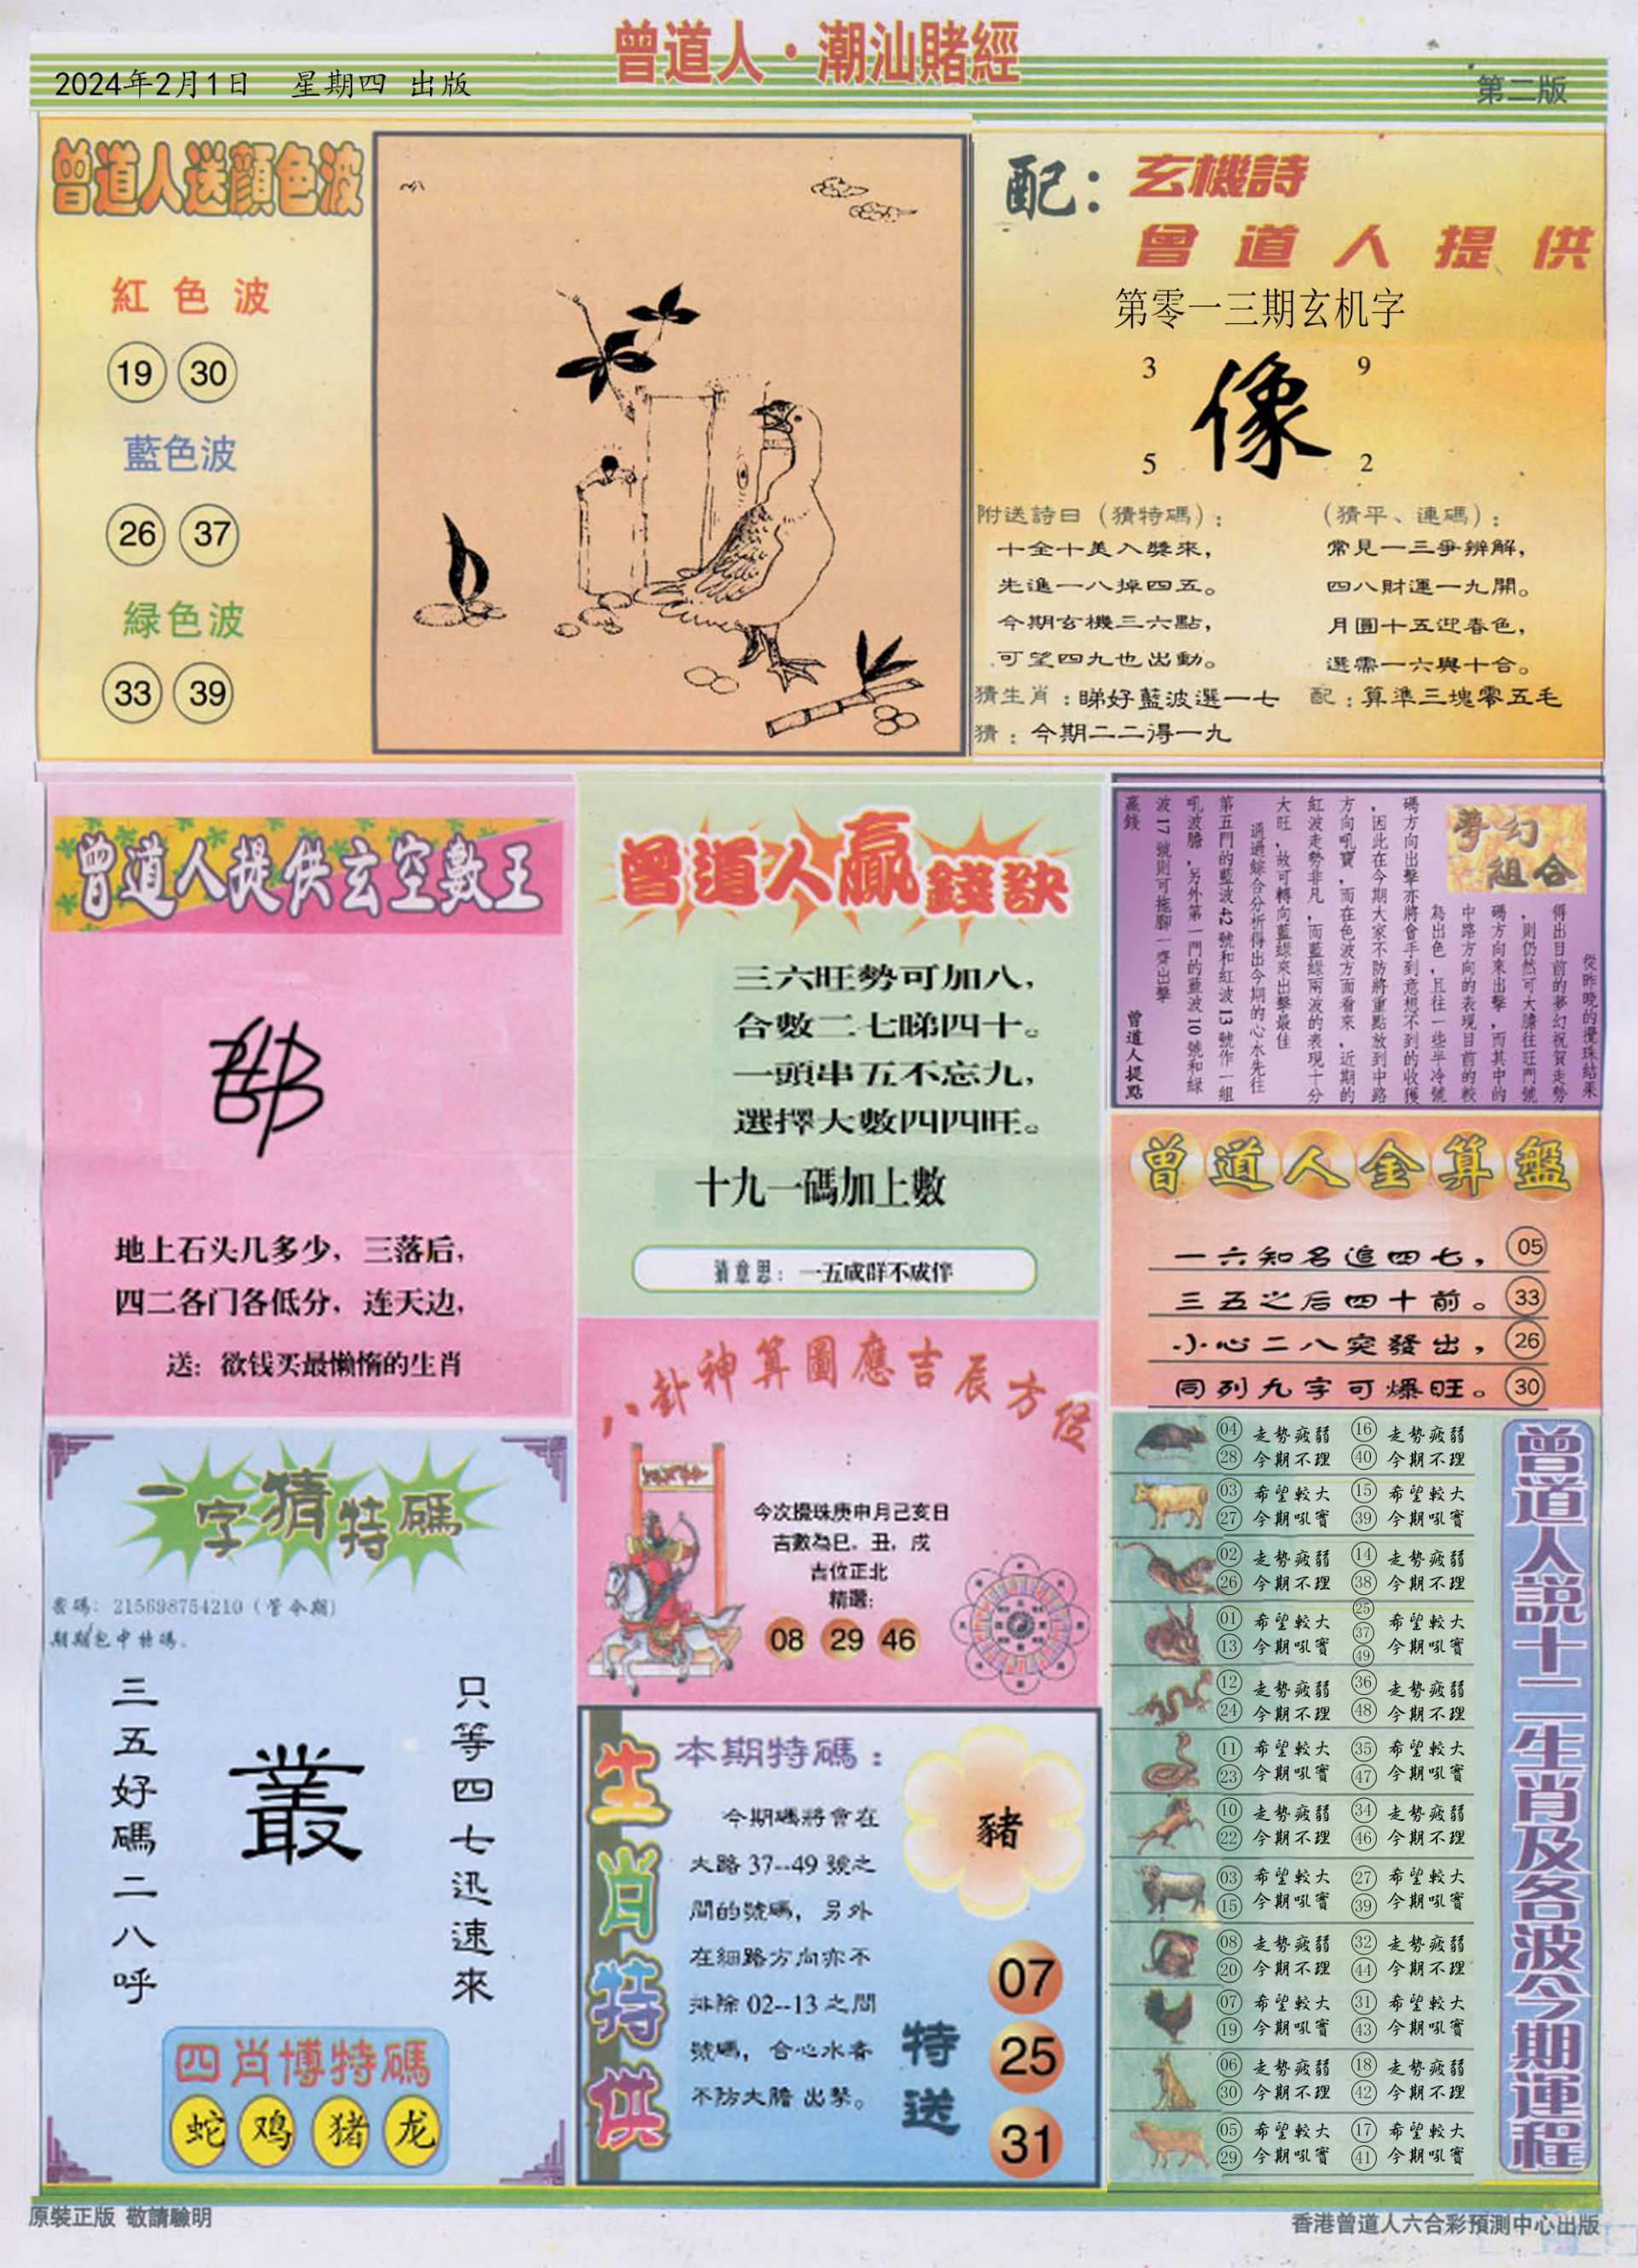 曾道人·潮汕賭經
2024年2月1日 星期四 出版
第二版
曾道人送顔色波
紅色波
19 30
藍色波
26 37
緑色波
33 39
配：玄機詩
曾道人提供
第零一三期玄机字
3 9
像
5 2
附送詩曰（猜特碼）：
十全十美入獎來，
先進一八掉四五。
今期玄機三六點，
可望四九也出動。
（猜平、連碼）：
常見一三爭辨解，
四八財運一九開。
月圓十五迎春色，
選需一六與十合。
猜生肖：睇好藍波選一七
配：算準三塊零五毛
猜：今期二二得一九
曾道人提供玄空數王
地上石头几多少，三落后，
四二各门各低分，连天边，
送：欲钱买最懒惰的生肖
曾道人贏錢訣
三六旺勢可加八，
合數二七睇四十。
一頭串五不忘九，
選擇大數四四旺。
十九一碼加上數
猜意思：一五成群不成伴
夢幻組合
從昨晚的攪珠結果
得出目前的夢幻祝賀走勢
，則仍然可大膽往旺門號
碼方向來出擊，而其中的
中路方向的表現目前的較
為出色，且往一些半冷號
碼方向出擊亦將會手到意想不到的收獲
，因此在今期大家不防將重點放到中路
方向吼寶，而在色波方面看來，近期的
紅波走勢非凡，而藍綠兩波的表現十分
大旺，故可轉向藍綠來出擊最佳
通過綜合分析得出今期的心水先往
第五門的藍波42號和紅波13號作一組
吼波膽，另外第一門的藍波10號和綠
波17號則可拖腳一齊出擊
贏錢
曾道人提點
曾道人金算盤
一六知名追四七， 05
三五之后四十前。 33
小心二八突發出， 26
同列九字可爆旺。 30
八卦神算圖應吉辰方位
今次攪珠庚申月己亥日
吉數為巳，丑，戌
吉位正北
精選：
08 29 46
一字猜特碼
密碼：215698754210（管令期）
期期包中特碼。
三五好碼二八呼
叢
只等四七迅速來
四肖博特碼
蛇 鸡 猪 龙
生肖特供
本期特碼：
今期碼將會在
大路37--49號之
間的號碼，另外
在細路方向亦不
排除02--13之間
號碼，合心水者
不防大膽出擊。
豬
特送
07
25
31
04 走勢疲弱 16 走勢疲弱
28 今期不理 40 今期不理
03 希望較大 15 希望較大
27 今期吼實 39 今期吼實
02 走勢疲弱 14 走勢疲弱
26 今期不理 38 今期不理
01 希望較大 25 37 希望較大
13 今期吼實 49 今期吼實
12 走勢疲弱 36 走勢疲弱
24 今期不理 48 今期不理
11 希望較大 35 希望較大
23 今期吼實 47 今期吼實
10 走勢疲弱 34 走勢疲弱
22 今期不理 46 今期不理
03 希望較大 27 希望較大
15 今期吼實 39 今期吼實
08 走勢疲弱 32 走勢疲弱
20 今期不理 44 今期不理
07 希望較大 31 希望較大
19 今期吼實 43 今期吼實
06 走勢疲弱 18 走勢疲弱
30 今期不理 42 今期不理
05 希望較大 17 希望較大
29 今期吼實 41 今期吼實
曾道人說十二生肖及各波今期運程
原裝正版 敬請驗明
香港曾道人六合彩預測中心出版